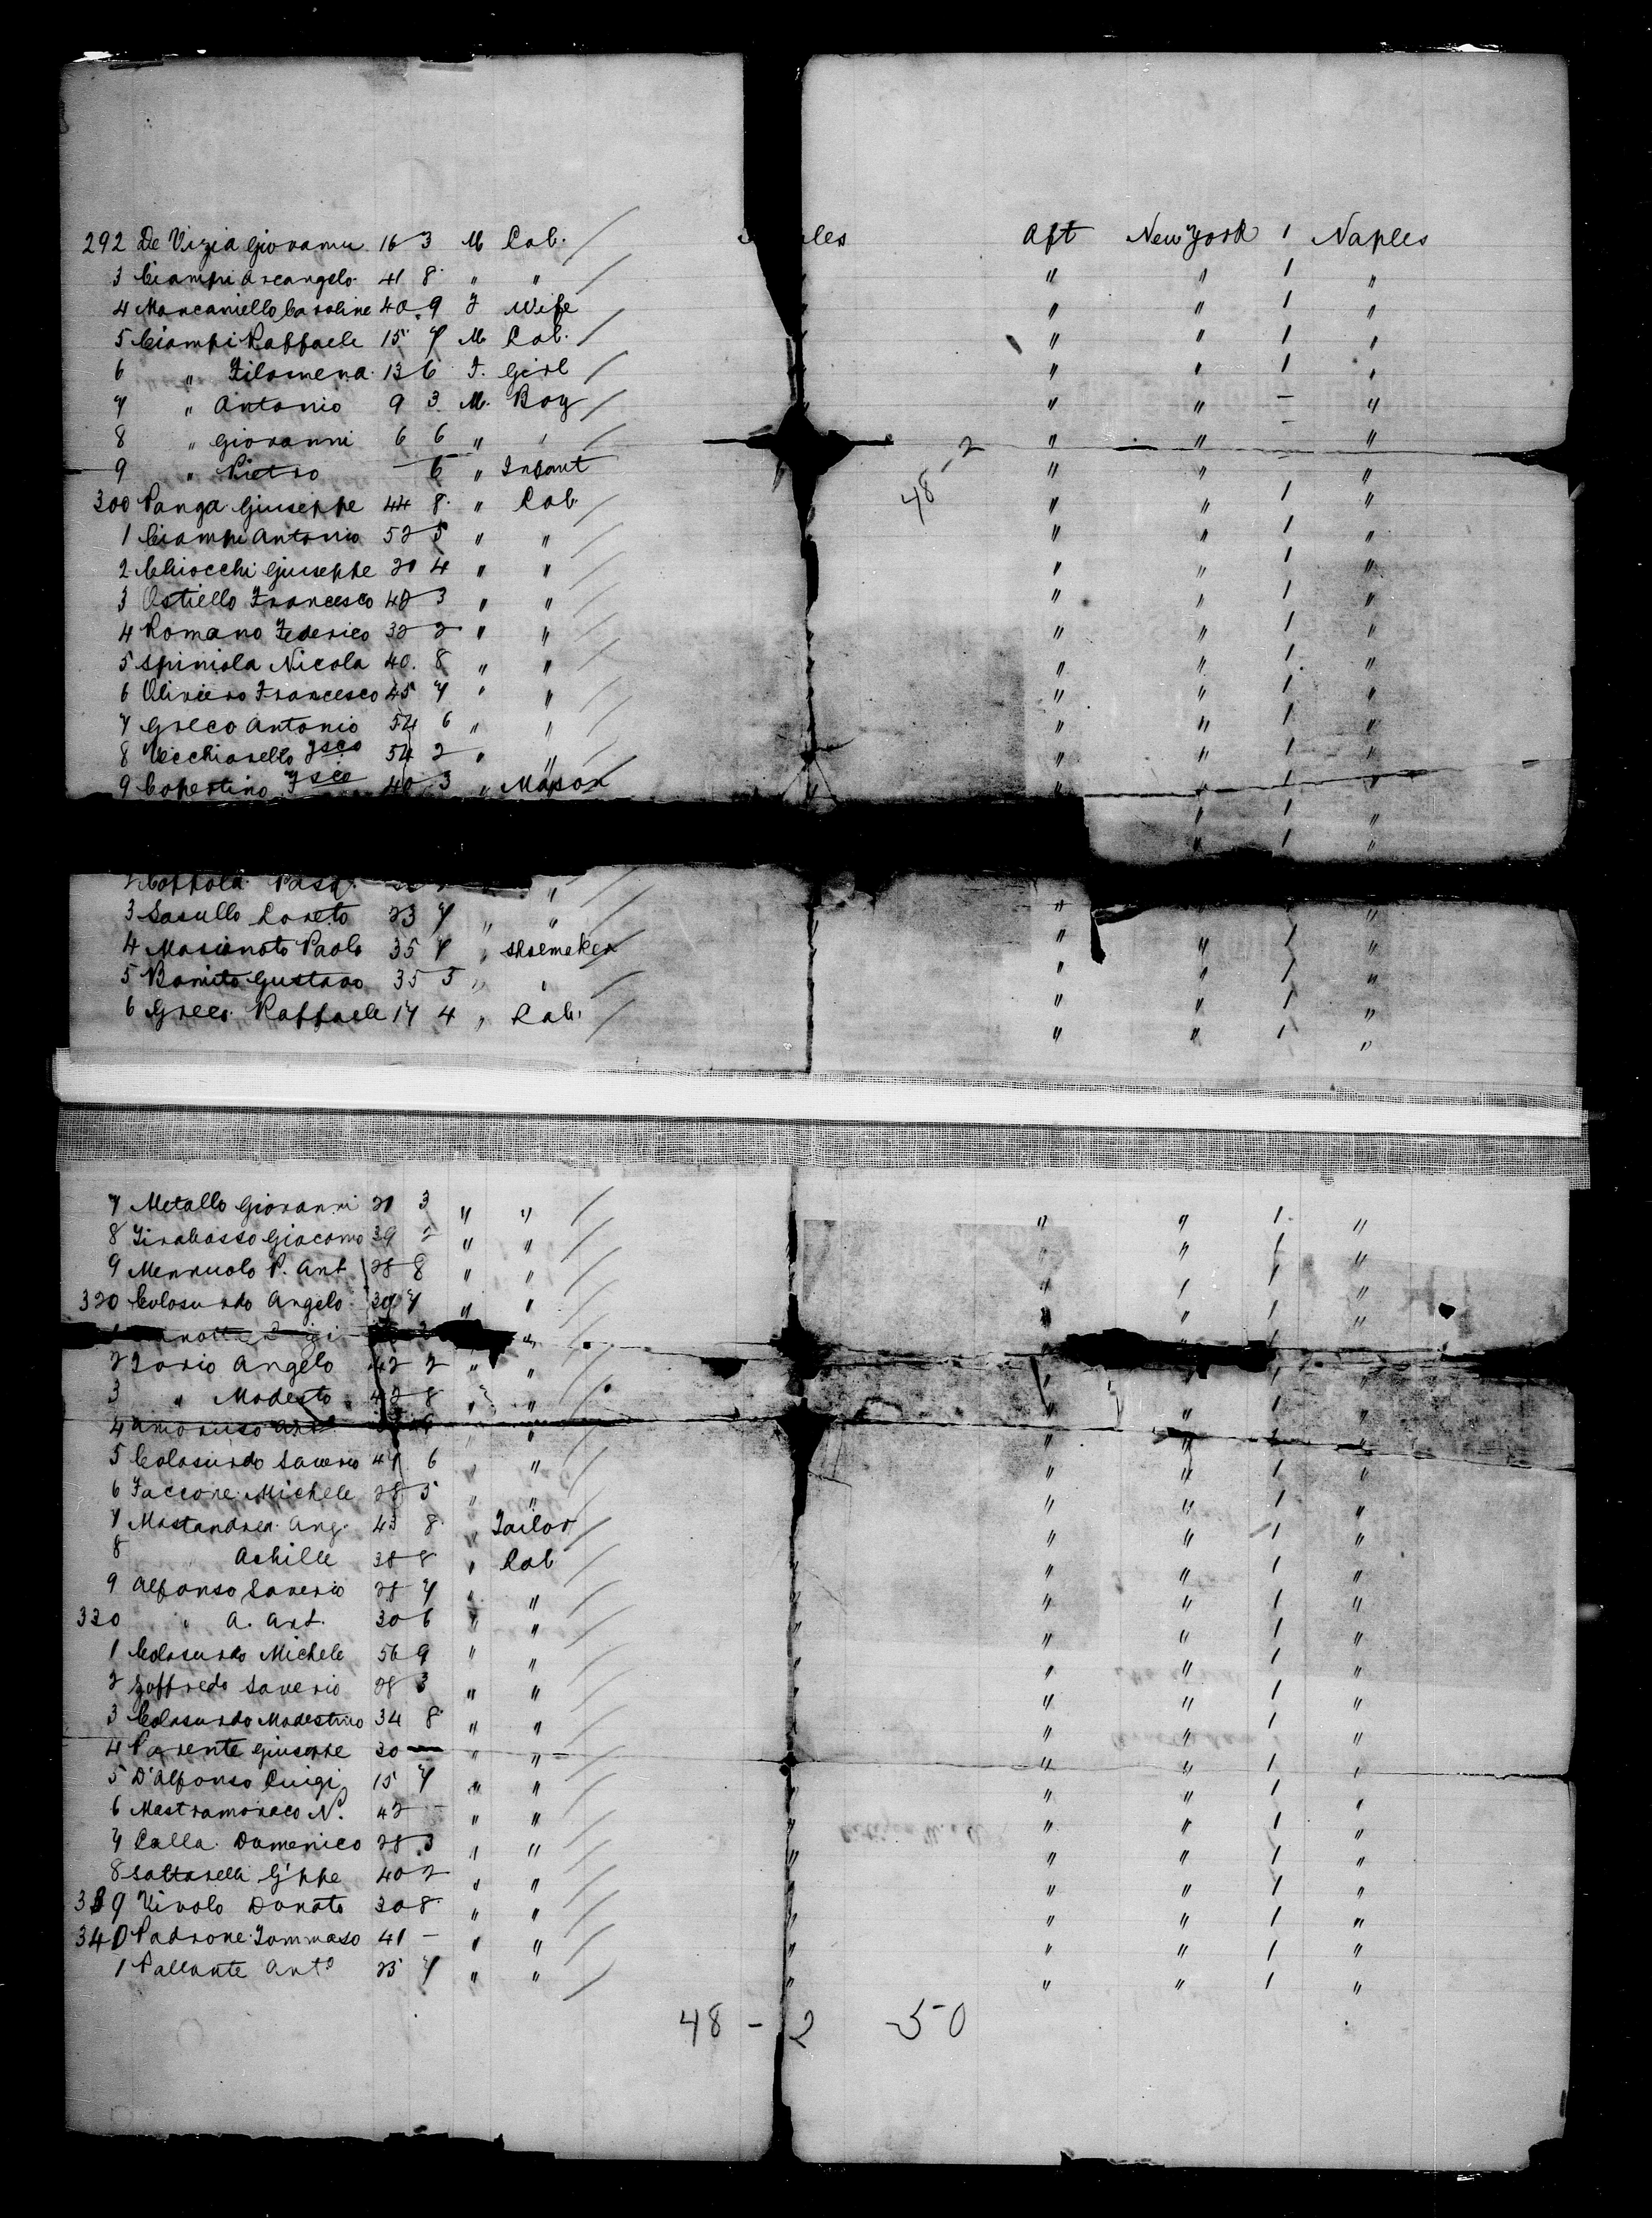 292 De Vizia Giovanni 16 3 M Lab. / Aft New York 1 Naples
3 Ciampi Arcangelo 41 8 " " / " " 1 "
4 Marcaniello Caroline 40 9 F Wife " " 1 "
5 Ciampi Raffaele 15 7 M Lab. / " " 1 "
6 " Filomena 13 6 F. Girl / " " 1 "
7 " Antonio 9 3 M. Boy / " " - "
8 " Giovanni 6 6 " " / " " - "
9 " Pietro - 6 " Infant " " "
48-2
300 Panga Giuseppe 44 8 " Lab. / " " 1 "
1 Ciampi Antonio 52 5 " " / " " 1 "
2 Chiocchi Giuseppe 4 " " / " " 1 "
3 Astiello Francesco 3 " " / " " 1 "
4 Romano Federico 32 2 " " / " " 1 "
5 Spiniola Nicola 40 8 " " / " " 1 "
6 Oliviero Francesco 45 7 " " / " " 1 "
7 Greco Antonio 54 6 " " / " " 1 "
8 Vecchiarello Fsco 54 2 " " / " " 1 "
9 Copertino Fsco 40 3 " Mason / " " 1 "
" 1 "
" 1 "
2 Coppola Pasq. " /
3 Sasullo Loreto 23 7 " " / " "
4 Masionoto Paolo 35 7 " Shoemaker " " 1 "
5 Bonito Gustavo 35 5 " " / " " 1 "
6 Greco Raffaele 17 4 " Lab. / " " 1 "
" " 1 "
7 Metallo Giovanni 3 " " / " " 1 "
8 Tirabasso Giacomo 39 2 " " / " " 1 "
9 Mennuolo P. Ant. 28 8 " " / " 1 1 "
320 Colasurdo Angelo 7 " " / " " 1 "
2 Iorio Angelo 42 2 " " / " 1 "
3 " Modesto 42 8 " " / " " 1 "
4 Amoruso Anto " / " " 1 "
5 Colasurdo Saverio 47 6 " " / " " 1 "
6 Iaccone Michele 28 5 " " / " " 1 "
7 Mastandrea Ang. 43 8 " Tailor / " " 1 "
8 Achille 38 8 " Lab / " " 1 "
9 Alfonso Saverio 28 7 " " / " " 1 "
330 " A. Ant. 30 6 " " / " " 1 "
1 Colasurdo Michele 56 9 " " / " " 1 "
2 Zoffredo Saverio 28 3 " " / " " 1 "
3 Colasurdo Modestino 34 8 " " / " " 1 "
4 Parente Giuseppe 30 - " " / " " 1 "
5 D'Alfonso Luigi 15 7 " " / " " 1 "
6 Mastramonaco N. 42 - " " / " " 1 "
7 Calla Domenico 28 3 " " / " " 1 "
8 Sattarelli G'ppe 40 2 " " / " " 1 "
339 Vivolo Donato 30 8 " " / " " 1 "
340 Padrone Tommaso 41 - " " / " " 1 "
1 Pallante Anto 25 7 " " / " " 1 "
48 - 2 50